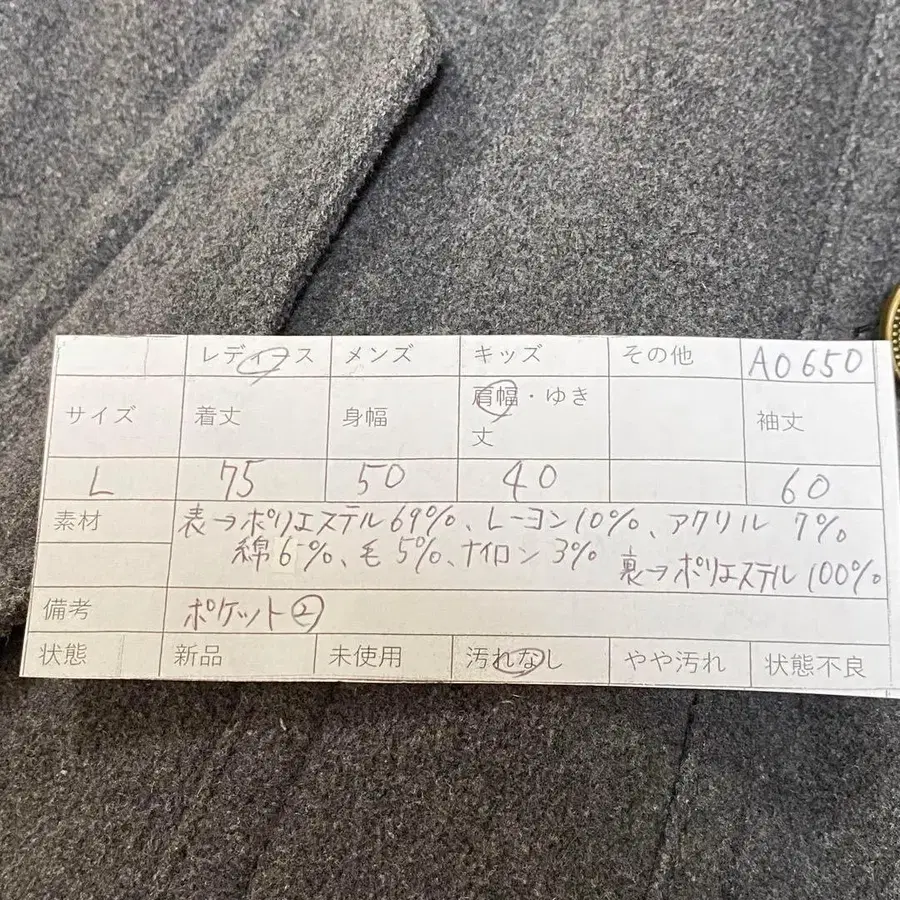 レディス メンズ キッズ その他 A0650
サイズ 着丈 身幅 肩幅・ゆき丈 袖丈
L 75 50 40 60
素材 表→ポリエステル69%、レーヨン10%、アクリル 7%
綿6%、毛5%、ナイロン3% 裏→ポリエステル100%
備考 ポケット②
状態 新品 未使用 汚れなし やや汚れ 状態不良